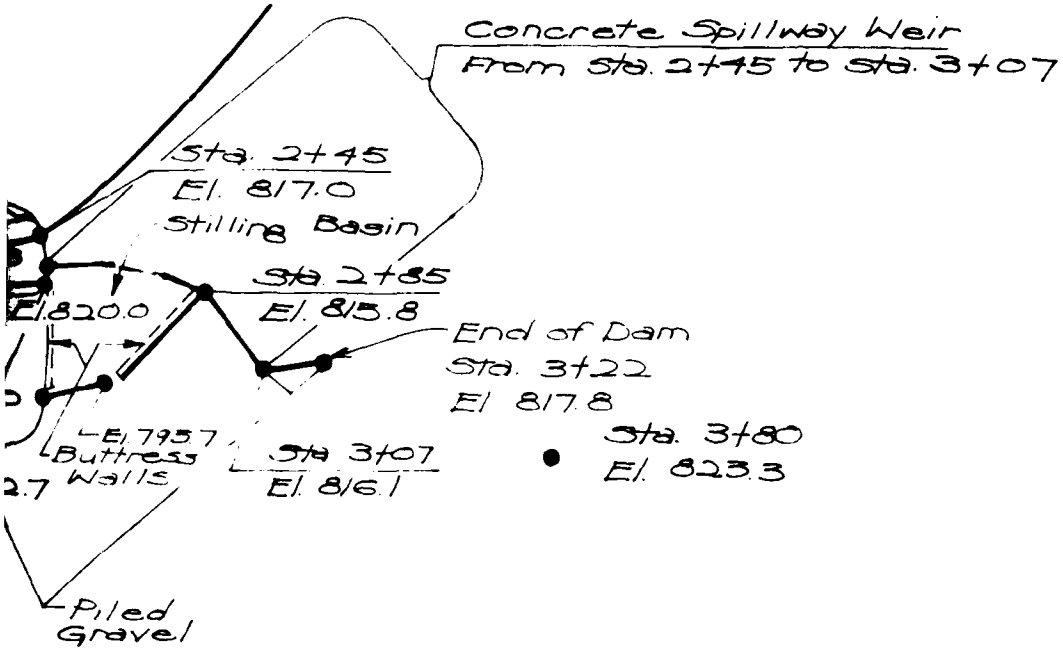 Concrete Spillway Weir
From Sta. 2+45 to Sta. 3+07
Sta. 2+45
El. 817.0
Stilling Basin
Sta. 2+85
El. 815.8
El. 820.0
End of Dam
Sta. 3+22
El 817.8
El. 793.7
Buttress
Walls
Sta 3+07
El. 816.1
Sta. 3+80
El. 823.3
2.7
Piled
Gravel